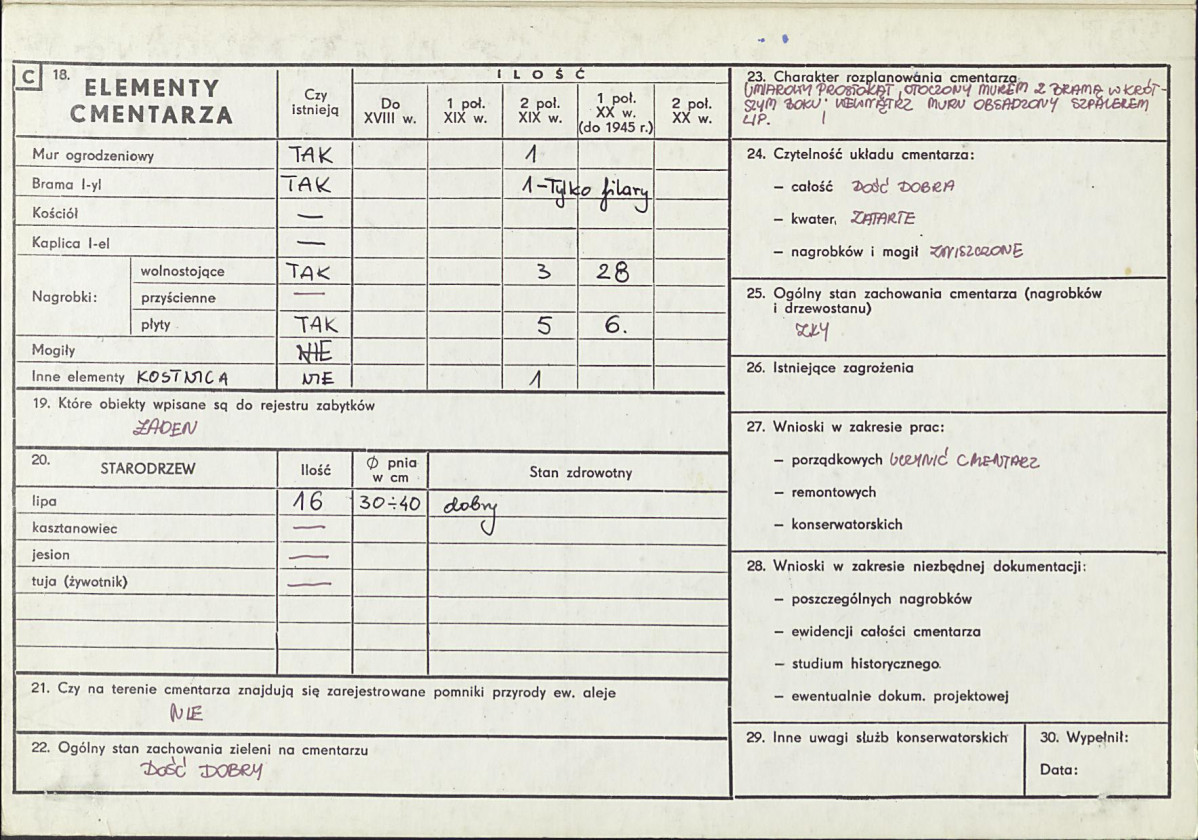 C 18. ELEMENTY CMENTARZA
Czy istnieją
ILOŚĆ
Do XVIII w.
1 poł. XIX w.
2 poł. XIX w.
1 poł. XX w. (do 1945 r.)
2 poł. XX w.
Mur ogrodzeniowy TAK 1
Brama I-yl TAK 1 - Tylko filary
Kościół —
Kaplica I-el —
Nagrobki:
wolnostojące TAK 3 28
przyścienne —
płyty TAK 5 6.
Mogiły NIE
Inne elementy KOSTNICA NIE 1
19. Które obiekty wpisane są do rejestru zabytków
ŻADEN
20. STARODRZEW Ilość Ø pnia w cm Stan zdrowotny
lipa 16 30÷40 dobry
kasztanowiec —
jesion —
tuja (żywotnik) —
21. Czy na terenie cmentarza znajdują się zarejestrowane pomniki przyrody ew. aleje
NIE
22. Ogólny stan zachowania zieleni na cmentarzu
DOŚĆ DOBRY
23. Charakter rozplanowania cmentarza
UMIAROWY PROSTOKĄT, OTOCZONY MUREM Z BRAMĄ W KRÓT-
SZYM BOKU. WEWNĄTRZ MURU OBSADZONY SZPALEREM
LIP.
24. Czytelność układu cmentarza:
— całość DOŚĆ DOBRA
— kwater, ZATARTE
— nagrobków i mogił ZNISZCZONE
25. Ogólny stan zachowania cmentarza (nagrobków
i drzewostanu)
ZŁY
26. Istniejące zagrożenia
27. Wnioski w zakresie prac:
— porządkowych UCZYNIĆ CMENTARZ
— remontowych
— konserwatorskich
28. Wnioski w zakresie niezbędnej dokumentacji:
— poszczególnych nagrobków
— ewidencji całości cmentarza
— studium historycznego
— ewentualnie dokum. projektowej
29. Inne uwagi służb konserwatorskich
30. Wypełnił:
Data: